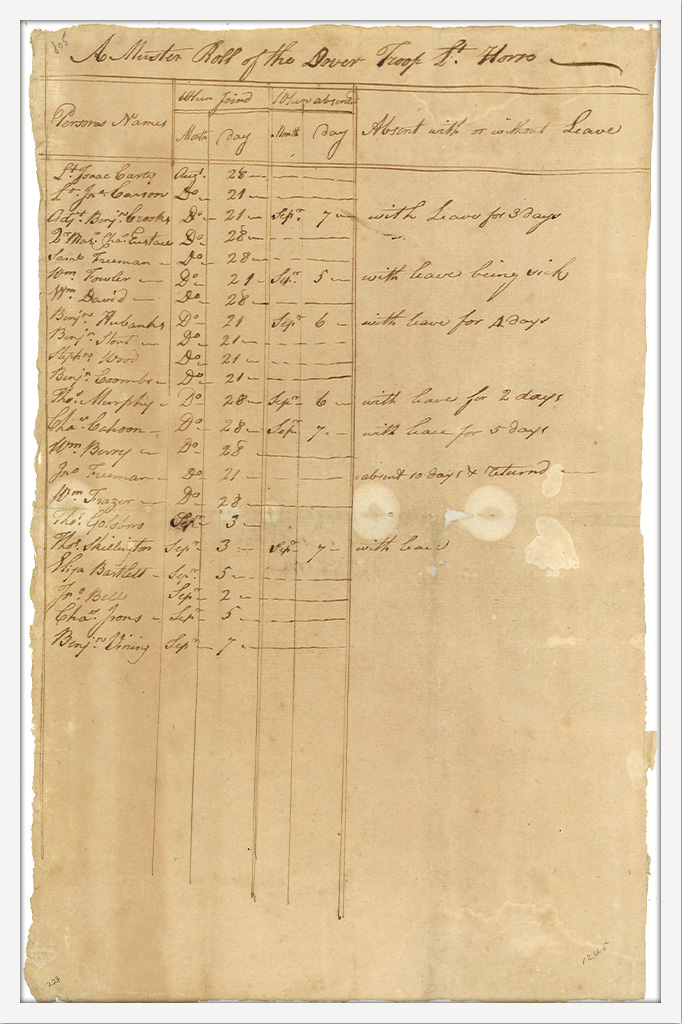 805
A Muster Roll of the Dover Troop Lt. Horse
When Joind When absent
Persons Names Month Day Month Day Absent with or without Leave
Lt. Isaac Carty Augt. 28
Lt. Jno. Carson Do 21
Adjt. Benjn. Crooks Do 21 Sepr. 7 with Leave for 3 days
Qr. Masr. Chas. Eustace Do 28
Saml Freeman Do 28
Wm. Fowler Do 21 Sepr. 5 with leave being sick
Wm. David Do 28
Benjn. Hubanks Do 21 Sepr 6 with leave for 4 days
Benjn. Stout Do 21
Stephn. Wood Do 21
Benjn. Coombe Do 21
Thos. Murphy Do 28 Sepr. 6 with leave for 2 days
Chas. Cahoon Do 28 Sepr. 7 with leave for 5 days
Wm. Berry Do 28
Jno Freeman Do 21 absent 10 days & returnd
Wm Frazer Do 28
Thos. Golsboro Sepr 3
Thos. Skillington Sepr. 3 Sepr. 7 with leave
Elija Bartlett Sepr. 5
Jno Bell Sepr. 2
Chas. Irons Sepr. 5
Benjn. Vining Sepr. 7
1245
224